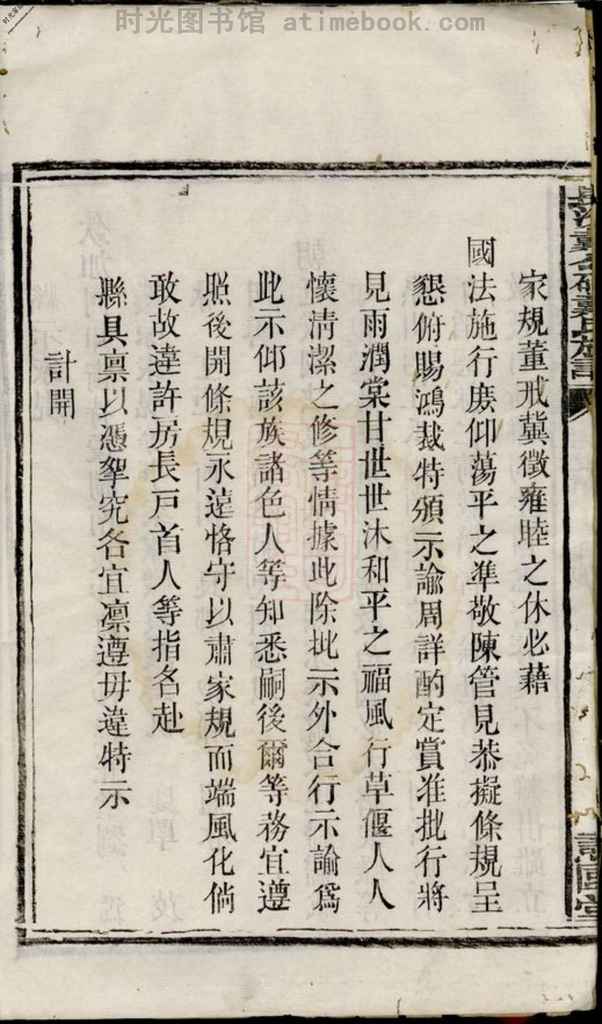 时光图书馆 atimebook.com
家規董戒冀徵雍睦之休必藉
國法施行庶仰蕩平之準敬陳管見恭擬條規呈
懇俯賜鴻裁特頒示諭周詳酌定賞准批行將
見雨潤棠甘世世沐和平之福風行草偃人人
懷清潔之修等情據此除批示外合行示諭爲
此示仰該族諸色人等知悉嗣後爾等務宜遵
照後開條規永遠恪守以肅家規而端風化倘
敢故違許房長戸首人等指名赴
縣具禀以憑拏究各宜凛遵毋違特示
計開